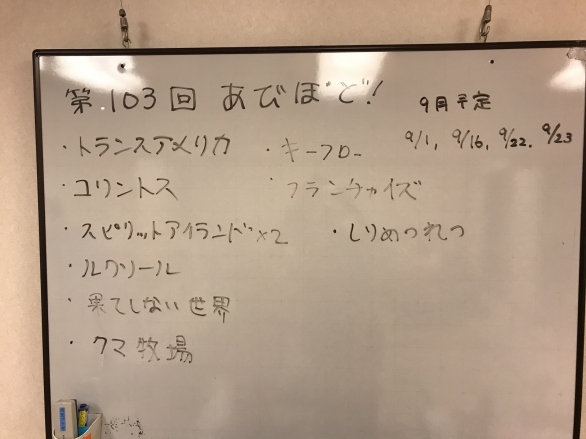 第103回 あびぼど!
9月予定
9/1, 9/16, 9/22, 9/23
・トランスアメリカ
・コリントス
・スピリットアイランド×2
・ルクソール
・果てしない世界
・クマ牧場
・キーフロー
・フランチャイズ
・しりめつれつ